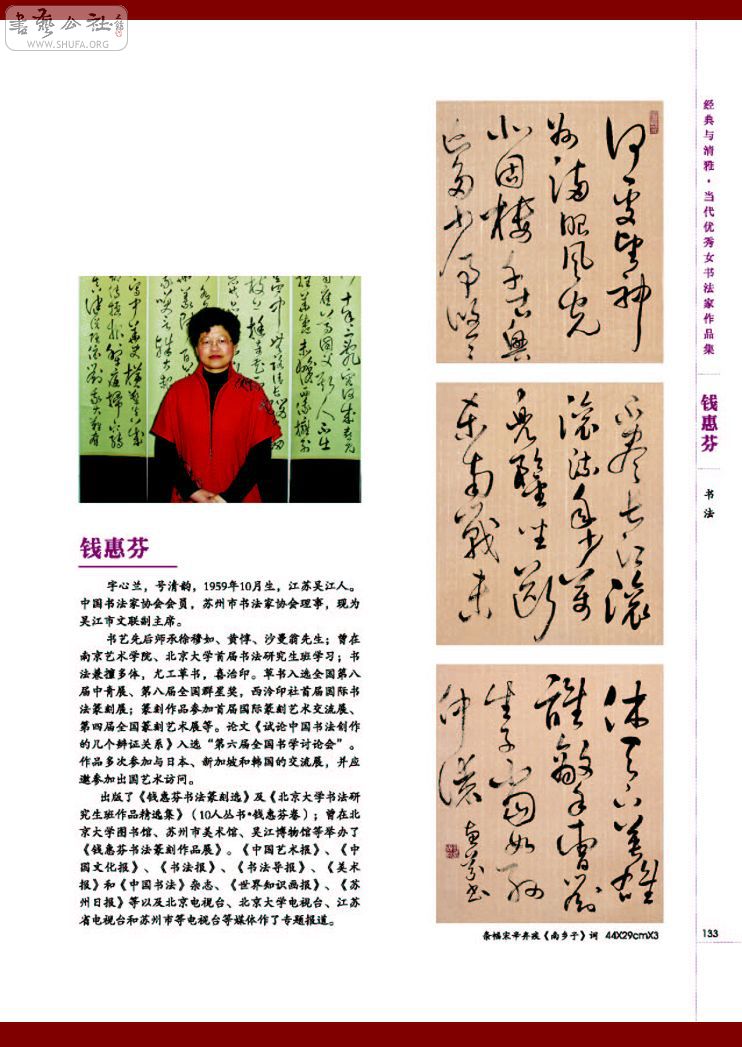 書藝公社
WWW.SHUFA.ORG
何处望神
州满眼风光
北固楼千古兴
亡多少事悠々
不尽长江滚
滚流年少万
兜鍪坐断
东南战未
休天下英雄
谁敌手曹刘
生子当如孙
仲谋
惠芬书
经典与清雅·当代优秀女书法家作品集
钱惠芬
书法
钱惠芬
字心兰，号清韵，1959年10月生，江苏吴江人。
中国书法家协会会员，苏州市书法家协会理事，现为
吴江市文联副主席。
书艺先后师承徐穆如、黄惇、沙曼翁先生；曾在
南京艺术学院、北京大学首届书法研究生班学习；书
法兼擅多体，尤工草书，喜治印。草书入选全国第八
届中青展、第八届全国群星奖，西泠印社首届国际书
法篆刻展；篆刻作品参加首届国际篆刻艺术交流展、
第四届全国篆刻艺术展等。论文《试论中国书法创作
的几个辩证关系》入选“第六届全国书学讨论会”。
作品多次参加与日本、新加坡和韩国的交流展，并应
邀参加出国艺术访问。
出版了《钱惠芬书法篆刻选》及《北京大学书法研
究生班作品精选集》（10人丛书•钱惠芬卷）；曾在北
京大学图书馆、苏州市美术馆、吴江博物馆等举办了
《钱惠芬书法篆刻作品展》。《中国艺术报》、《中
国文化报》、《书法报》、《书法导报》、《美术
报》和《中国书法》杂志、《世界知识画报》、《苏
州日报》等以及北京电视台、北京大学电视台、江苏
省电视台和苏州市等电视台等媒体作了专题报道。
条幅宋辛弃疾《南乡子》词 44X29cmX3
133